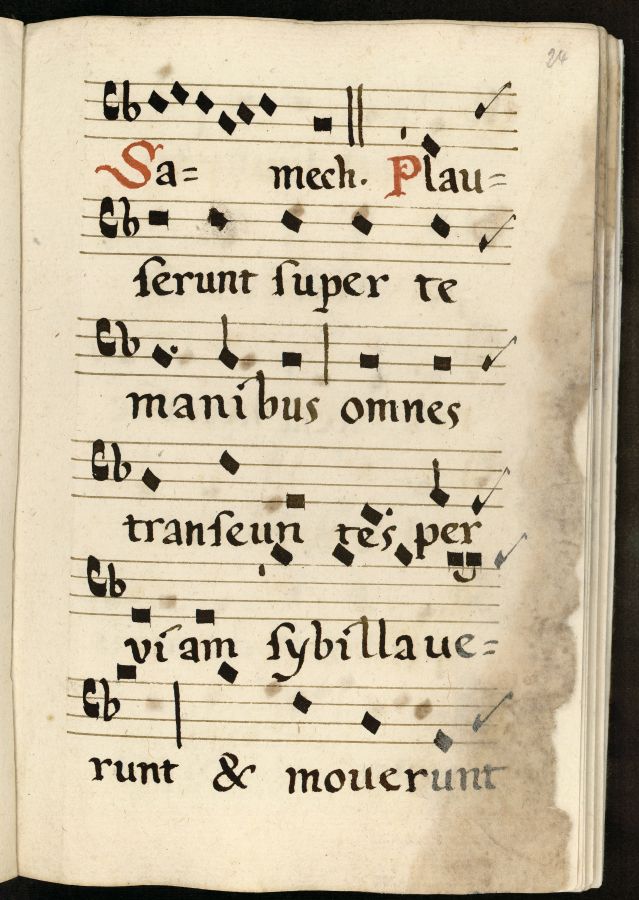 24
Sa= mech. Plau=
serunt super te
manibus omnes
transeun tes per
viam sybillaue=
runt & mouerunt